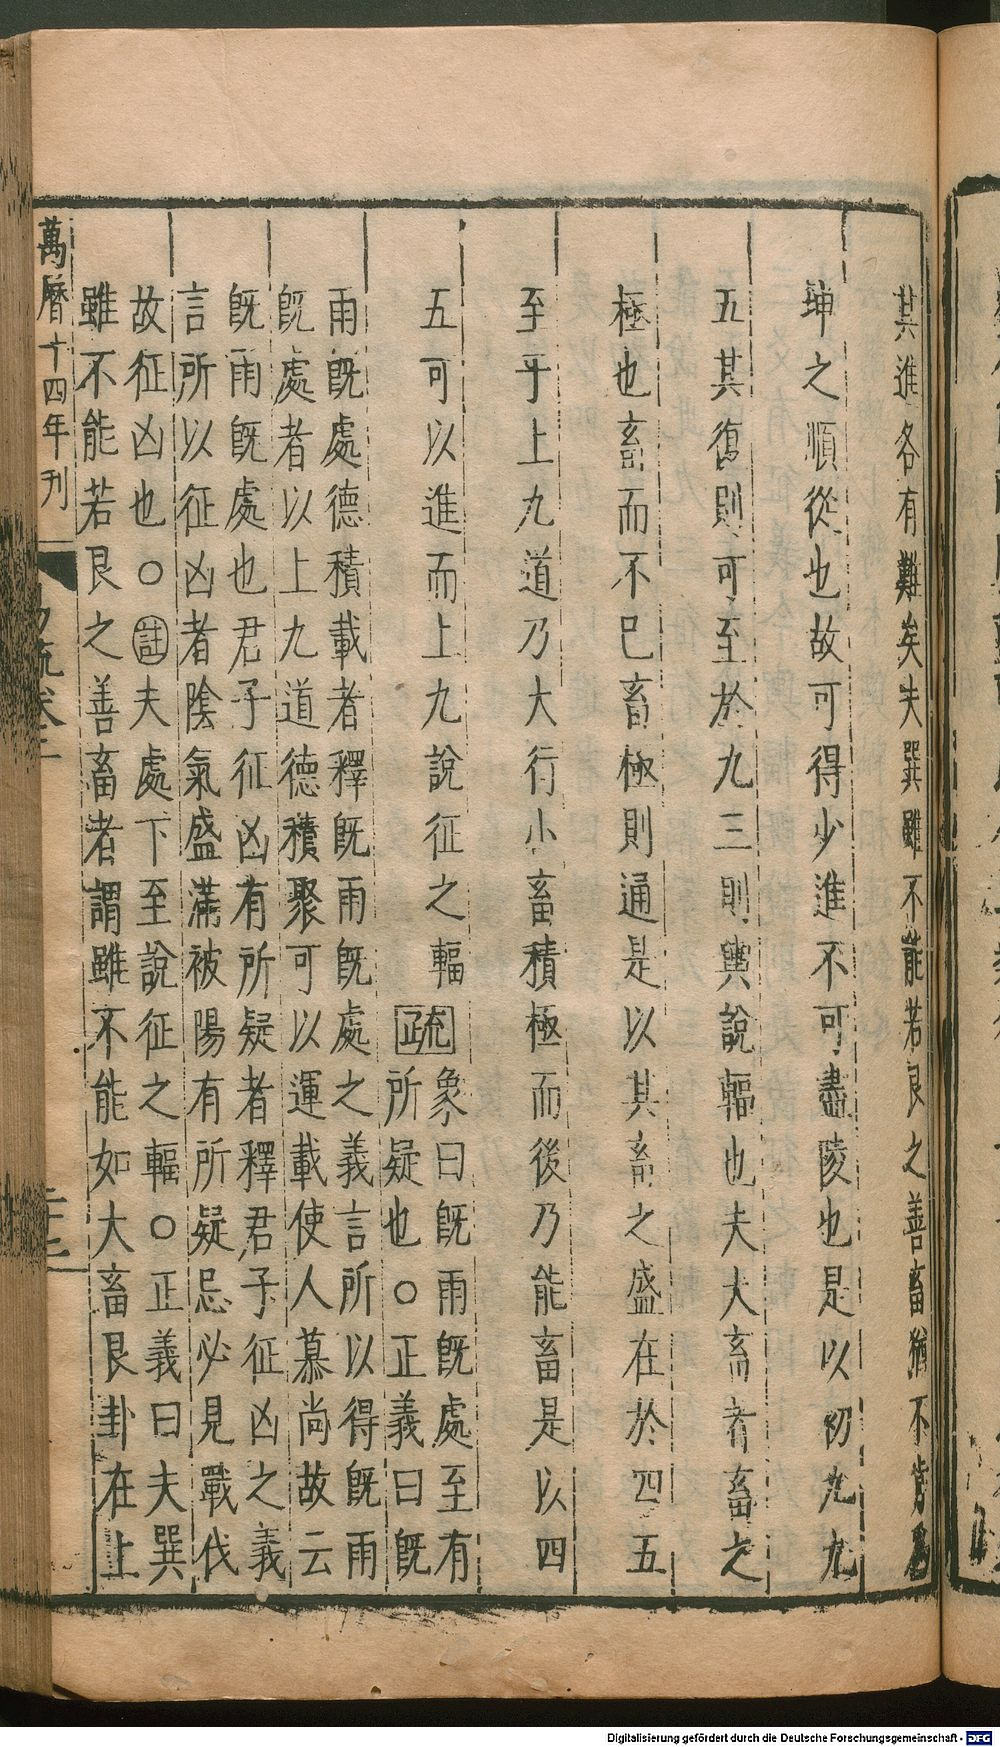 其進各有難矣夫巽雖不能若艮之善畜猶不肯爲
坤之順從也故可得少進不可盡陵也是以初九九
五其復則可至於九三則輿說輻也夫大畜者畜之
極也畜而不已畜極則通是以其畜之盛在於四五
至于上九道乃大行小畜積極而後乃能畜是以四
五可以進而上九說征之輻
疏
象曰旣雨旣處至有
所疑也○正義曰旣
雨旣處德積載者釋旣雨旣處之義言所以得旣雨
旣處者以上九道德積聚可以運載使人慕尚故云
旣雨旣處也君子征凶有所疑者釋君子征凶之義
言所以征凶者陰氣盛滿被陽有所疑忌必見戰伐
故征凶也○註夫處下至說征之輻○正義曰夫巽
雖不能若艮之善畜者謂雖不能如大畜艮卦在上
萬曆十四年刊
易疏卷二
Digitalisierung gefördert durch die Deutsche Forschungsgemeinschaft - DFG